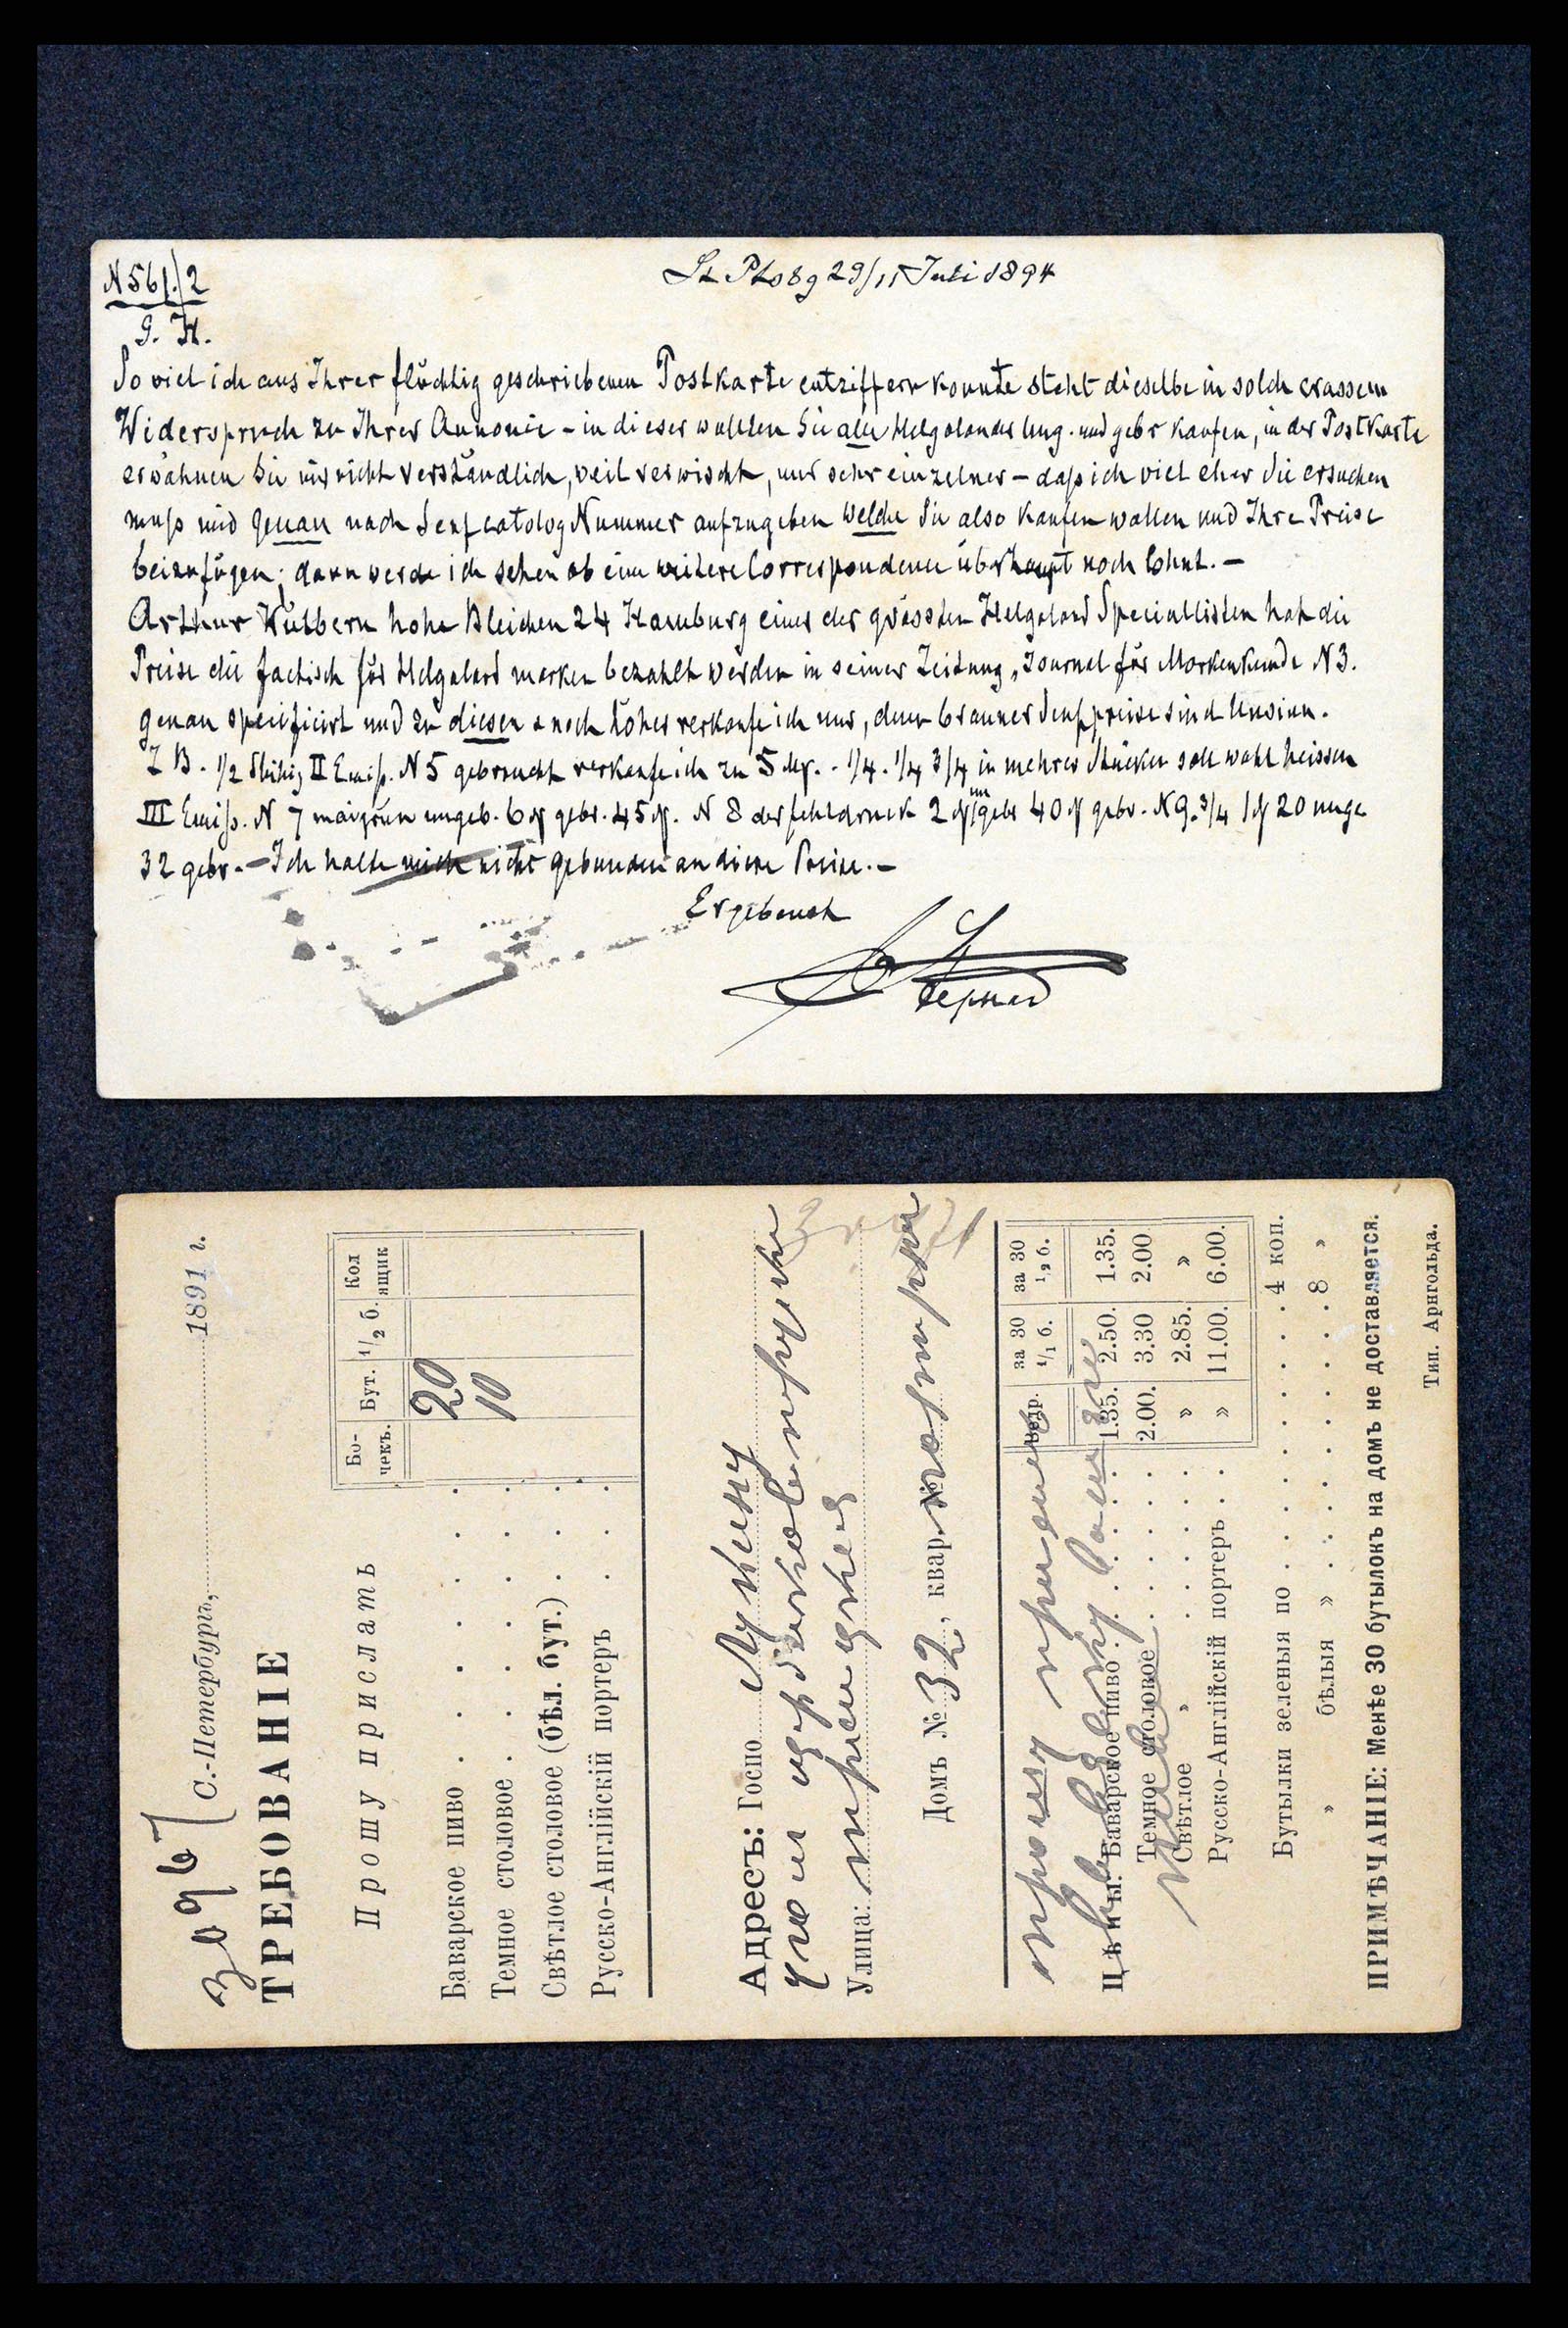 N 561./2
St Ptbg 29/11 Juli 1894
G. H.
So viel ich aus Ihrer flüchtig geschriebenen Postkarte entziffern konnte steht dieselbe in solch crassem
Widerspruch zu Ihrer Annonce - in dieser wollten Sie alle Helgolander ung. und gebr kaufen, in der Postkarte
erwähnen Sie mir nicht verständlich, weil verwischt, nur sehr einzelner - daß ich viel eher Sie ersuchen
muß mir genau nach Senfcatolog Nummer aufzugeben welche Sie also kaufen wollen und Ihre Preise
beizufügen; dann werde ich sehen ob eine weitere Correspondence überhaupt noch lohnt. -
Arthur Hohe Bleichen 24 Hamburg einer der grössten Helgoland Speciallisten hat die
Preise die factisch für Helgoland marken bezahlt werden in seiner Zeitung „Journal für Markenkunde N 3.
genau specificirt und zu diesen & noch höher verkaufe ich nur, denn Senfpreise sind Unsinn.
Z B. 1/2 II Emiß. N 5 gebraucht verkaufe ich zu 5 - 1/4. 1/4 3/4 in mehrer Stücken soll wohl heissen
III Emiß. N 7 maigrün ungeb. 6 gebr. 45. N 8 der fehldruck 2 40 gebr. N 9. 3/4 20 unge
32 gebr. - Ich halte mich nicht gebunden an diese Preise. -
Ergebenst
С.-Петербургъ, 1891 г.
ТРЕБОВАНІЕ
Прошу прислать
Бо-чекъ. Бут. 1/2 б. Кол ящик
Баварское пиво 20
Темное столовое 10
Свѣтлое столовое (бѣл. бут.)
Русско-Англійскій портеръ
Адресъ: Госпо Лукину
Улица:
Домъ № 32, квар. №
прошу
Ведр. за 30 1/1 б. за 30 1/2 б.
Цѣны: Баварское пиво 1.35. 2.50. 1.35.
Темное столовое 2.00. 3.30 2.00
Свѣтлое » » 2.85. »
Русско-Англійскій портеръ » 11.00. 6.00.
Бутылки зеленыя по 4 коп.
» бѣлыя » 8 »
ПРИМѢЧАНІЕ: Менѣе 30 бутылокъ на домъ не доставляется.
Тип. Арнгольда.